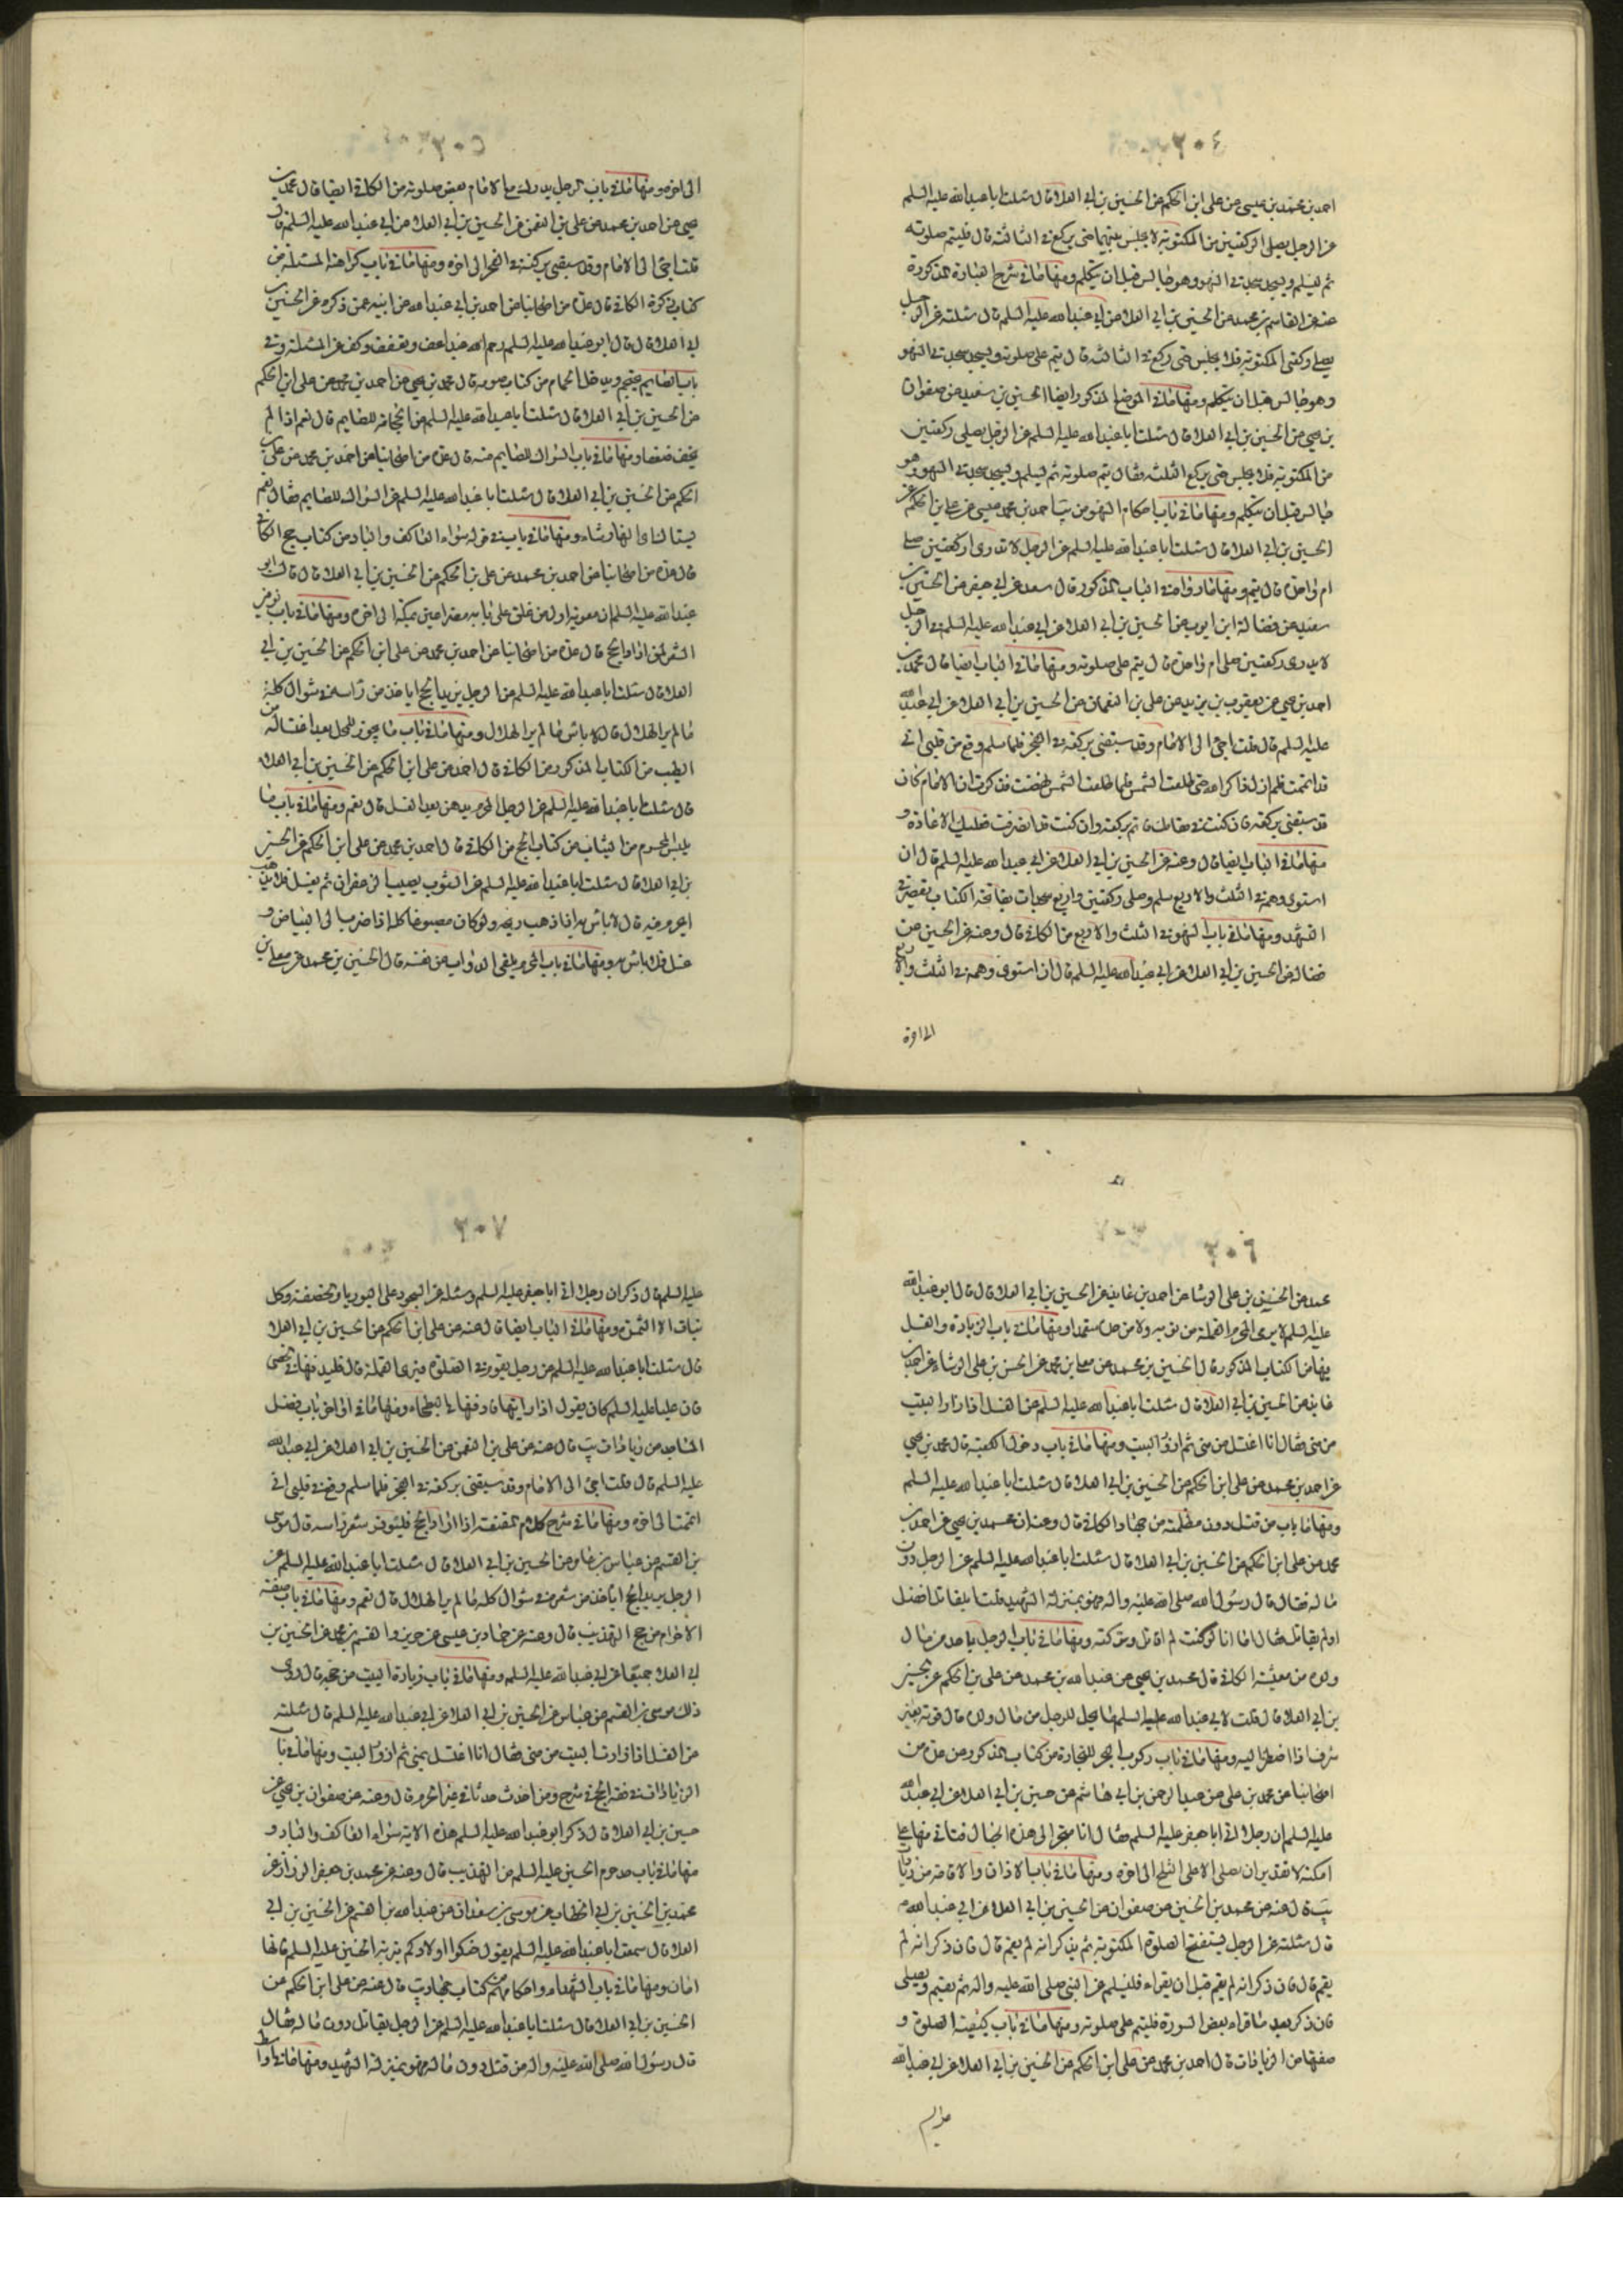 ٢٠٤
احمد بن محمد بن عيسى عن على ابن الحكم عن الحسين بن ابى العلا قال سئلت ابا عبد الله عليه السلم
عن الرجل يصلى الركعتين من المكتوبة لا يجلس بينهما حتى يركع فى الثالثة قال فليتم صلوته
ثم ليسلم ويسجد سجدتى السهو وهو جالس قبل ان يتكلم ومنها ما فى شرح العبارة المذكورة
عنه عن القاسم بن محمد عن الحسين بن ابى العلا عن ابى عبد الله عليه السلم قال سئلته عن الرجل
يصلى ركعتى المكتوبة فلا يجلس حتى ركع فى الثالثة قال يتم على صلوته ويسجد سجدتى السهو
وهو جالس قبل ان يتكلم ومنها ما فى الموضع المذكور ايضا الحسين بن سعيد عن صفوان
بن يحيى عن الحسين بن ابى العلا قال سئلت ابا عبد الله عليه السلم عن الرجل يصلى ركعتين
من المكتوبة فلا يجلس حتى يركع الثلثة فقال يتم صلوته ثم ليسلم ويسجد سجدتى السهو وهو
جالس قبل ان يتكلم ومنها ما فى باب احكام السهو من يب احمد بن محمد عيسى عن على بن الحكم عن
الحسين بن ابى العلا قال سئلت ابا عبد الله عليه السلم عن الرجل لا يدرى اركعتين صلى
ام واحدة قال يتم ومنها ما رواه فى الباب المذكور قال سعد عن ابى جعفر عن الحسين بن
سعيد عن فضالة ابن ايوب عن الحسين بن ابى العلا عن ابى عبد الله عليه السلم فى الرجل
لا يدرى ركعتين صلى ام واحدة قال يتم على صلوته ومنها ما فى الباب ايضا قال محمد بن
احمد بن يحيى عن يعقوب بن يزيد عن على بن النعمان عن الحسين بن ابى العلا عن ابى عبد الله
عليه السلم قال قلت اجئ الى الامام وقد سبقنى بركعة فى الفجر فلما سلم وقع من قلبى انى
قد اتممت فلم ازل ذاكرا لله حتى طلعت الشمس فلما طلعت الشمس نهضت فذكرت ان الامام كان
قد سبقنى بركعة فان كنت فى مقامك فاتم بركعة وان كنت قد انصرفت فعليك الاعادة و
منها ما فى الباب ايضا قال وعنه عن الحسين بن ابى العلا عن ابى عبد الله عليه السلم قال ان
استوى وهمه فى الثلث والاربع سلم وصلى ركعتين واربع سجدات بفاتحة الكتاب يقصر فى
التشهد ومنها ما فى باب السهو فى الثلث والاربع من الكافى قال وعنه عن الحسين عن
فضالة عن الحسين بن ابى العلا عن ابى عبد الله عليه السلم قال ان استوى وهمه فى الثلث والاربع
الى اخره
٢٠٥
الى اخره ومنها ما فى باب الرجل يدرك مع الامام بعض صلوته من الكافى ايضا قال محمد بن
يحيى عن احمد بن محمد عن على بن النعمن عن الحسين بن ابى العلا عن ابى عبد الله عليه السلم قال
قلت اجئ الى الامام وقد سبقنى بركعة فى الفجر الى اخره ومنها ما فى باب كراهية المسئلة من
كتاب زكوة الكافى قال عدة من اصحابنا عن احمد بن ابى عبد الله عن ابيه عمن ذكره عن الحسين بن
ابى العلا قال قال ابو عبد الله عليه السلم رحم الله عبدا عف وتعفف وكف عن المسئلة وفى
باب الصايم يحتجم ويدخل الحمام من كتاب صومه قال محمد بن يحيى عن احمد بن محمد عن على ابن الحكم
عن الحسين بن ابى العلا قال سئلت ابا عبد الله عليه السلم عن الحجامة للصايم قال نعم اذا لم
يخف ضعفا ومنها ما فى باب السواك للصايم منه قال عدة من اصحابنا عن احمد بن محمد عن على بن
الحكم عن الحسين بن ابى العلا قال سئلت ابا عبد الله عليه السلم عن السواك للصايم فقال نعم
يستاك اى النهار شاء ومنها ما فى باب فى قوله سواء العاكف والباد من كتاب حج الكافى
قال عدة من اصحابنا عن احمد بن محمد عن على بن الحكم عن الحسين بن ابى العلا قال قال ابو
عبد الله عليه السلم ان معوية اول من علق على بابه مصراعين بمكة الى اخره ومنها ما فى باب توفير
الشعر لمن اراد الحج قال عدة من اصحابنا عن احمد بن محمد عن على ابن الحكم عن الحسين بن ابى
العلا قال سئلت ابا عبد الله عليه السلم عن الرجل يريد الحج اياخذ من راسه فى شوال كله
ما لم ير الهلال قال لا باس ما لم ير الهلال ومنها ما فى باب ما يجوز للمحرم بعد اغتساله من
الطيب من الكتاب المذكور من الكافى قال احمد عن على ابن الحكم عن الحسين بن ابى العلا
قال سئلت ابا عبد الله عليه السلم عن الرجل المحرم يدهن بعد الغسل قال نعم ومنها ما فى باب ما
يلبس المحرم من الثياب من كتاب الحج من الكافى قال احمد بن محمد عن على ابن الحكم عن الحسين
بن ابى العلا قال سئلت ابا عبد الله عليه السلم عن الثوب يصيبه الزعفران ثم يغسل فلا يذهب
ايحرم فيه قال لا باس به اذا ذهب ريحه ولو كان مصبوغا كله اذا ضرب الى البياض و
غسل فلا باس به ومنها ما فى باب المحرم يلقى الدواب عن نفسه قال الحسين بن محمد عن معلى بن
٢٠٦
محمد عن الحسين بن على الوشا عن احمد بن عايذ عن الحسين بن ابى العلا قال قال ابو عبد الله
عليه السلم لا يرمى المحرم القملة من ثوبه ولا من جسده متعمدا ومنها ما فى باب الزيادة والغسل
فيها من الكتاب المذكور قال الحسين بن محمد عن معلى بن محمد عن الحسن بن على الوشاء عن احمد بن
عايذ عن الحسين بن ابى العلا قال سئلت ابا عبد الله عليه السلم عن الغسل اذا زار البيت
من منى فقال انا اغتسل من منى ثم ازور البيت ومنها ما فى باب دخول الكعبة قال محمد بن يحيى
عن احمد بن محمد عن على ابن الحكم عن الحسين بن ابى العلا قال سئلت ابا عبد الله عليه السلم
ومنها ما باب من قتل دون مظلمته من جهاد الكافى قال وعنه ان محمد بن يحيى عن احمد بن
محمد عن على ابن الحكم عن الحسين بن ابى العلا قال سئلت ابا عبد الله عليه السلم عن الرجل دون
ماله فقال قال رسول الله صلى الله عليه واله فهو بمنزلة الشهيد قلت ايقاتل افضل
او لم يقاتل فقال اما انا لو كنت لم اقاتل وتركته ومنها ما فى باب الرجل ياخذ من مال
ولده من معيشة الكافى قال محمد بن يحيى عن عبد الله بن محمد عن على بن الحكم عن الحسين
بن ابى العلا قال قلت لابى عبد الله عليه السلم ما يحل للرجل من مال ولده قال قوته بغير
سرف اذا اضطر اليه ومنها ما فى باب ركوب البحر للتجارة من كتاب المذكور عن عدة من
اصحابنا عن محمد بن على عن عبد الرحمن بن ابى هاشم عن حسين بن ابى العلا عن ابى عبد الله
عليه السلم ان رجلا اتى ابا جعفر عليه السلم فقال انا نتجر الى هذه الجبال فناتى منها على
امكنة لا نقدر ان نصلى الا على الثلج الى اخره ومنها ما فى باب الاذان والاقامة من زيادات
يب قال عنه عن محمد بن الحسين عن صفوان عن الحسين بن ابى العلا عن ابى عبد الله م
قال سئلته عن الرجل يستفتح الصلوة المكتوبة ثم يذكر انه لم يقم قال فان ذكر انه لم
يقم قال فان ذكر انه لم يقم قبل ان يقراء فليسلم عن النبى صلى الله عليه واله ثم يقيم ويصلى
فان ذكر بعد ما قراء بعض السورة فليتم على صلوته ومنها ما فى باب كيفية الصلوة و
صفتها من الزيادات قال احمد بن محمد عن على ابن الحكم عن الحسين بن ابى العلا عن ابى عبد الله
عليه السلم
٢٠٧
عليه السلم قال ذكر ان رجلا اتى ابا جعفر عليه السلم وسئله عن السجود على البوريا والخصفة وكل
نبات الا الثمرة ومنها ما فى الباب ايضا قال عنه عن على ابن الحكم عن الحسين بن ابى العلا
قال سئلت ابا عبد الله عليه السلم عن رجل يقوم فى الصلوة فيرى القملة قال فليدفنها فى الحصى
فان عليا عليه السلم كان يقول اذا رايتها فادفنها فى البطحاء ومنها ما فى اواخر باب فضل
المساجد من زيادات يب قال عنه عن على بن النعمن عن الحسين بن ابى العلا عن ابى عبد الله
عليه السلم قال قلت اجئ الى الامام وقد سبقنى بركعة فى الفجر فلما سلم وقع فى قلبى انى
اتممت الى اخره ومنها ما فى شرح كلام المقنعة اذا اراد الحج فليوفر شعر راسه قال موسى
بن القسم عن عباس بن عامر عن الحسين بن ابى العلا قال سئلت ابا عبد الله عليه السلم عن
الرجل يريد الحج اياخذ من شعره فى شوال كله ما لم ير الهلال قال نعم ومنها ما فى باب صفة
الاحرام من حج التهذيب قال وعنه عن حماد بن عيسى عن حريز والقسم بن محمد عن الحسين بن
ابى العلا جميعا عن ابى عبد الله عليه السلم ومنها ما فى باب زيارة البيت من حجه قال روى
ذلك موسى بن القسم عن عباس عن الحسين بن ابى العلا عن ابى عبد الله عليه السلم قال سئلته
عن الغسل اذا زار البيت من منى فقال انا اغتسل بمنى ثم ازور البيت ومنها ما فى باب
الزيادات فى فقه الحج فى شرح ومن احدث حدثا فى غير الحرم قال وعنه عن صفوان بن يحيى عن
حسين بن ابى العلا قال ذكر ابو عبد الله عليه السلم هذه الاية سواء العاكف والباد و
منها ما فى باب حد حرم الحسين عليه السلم من التهذيب قال وعنه عن محمد بن جعفر الرزاز عن
محمد بن الحسين بن ابى الخطاب عن موسى بن سعدان عن عبد الله بن القسم عن الحسين بن ابى
العلا قال سمعت ابا عبد الله عليه السلم يقول حنكوا اولادكم بتربة الحسين عليه السلم فانها
امان ومنها ما فى باب الشهداء واحكامهم من كتاب جهاد يب قال عنه عن على ابن الحكم عن
الحسين بن ابى العلا قال سئلت ابا عبد الله عليه السلم عن الرجل يقاتل دون ماله فقال
قال رسول الله صلى الله عليه واله من قتل دون ماله فهو بمنزلة الشهيد ومنها ما فى اواسط